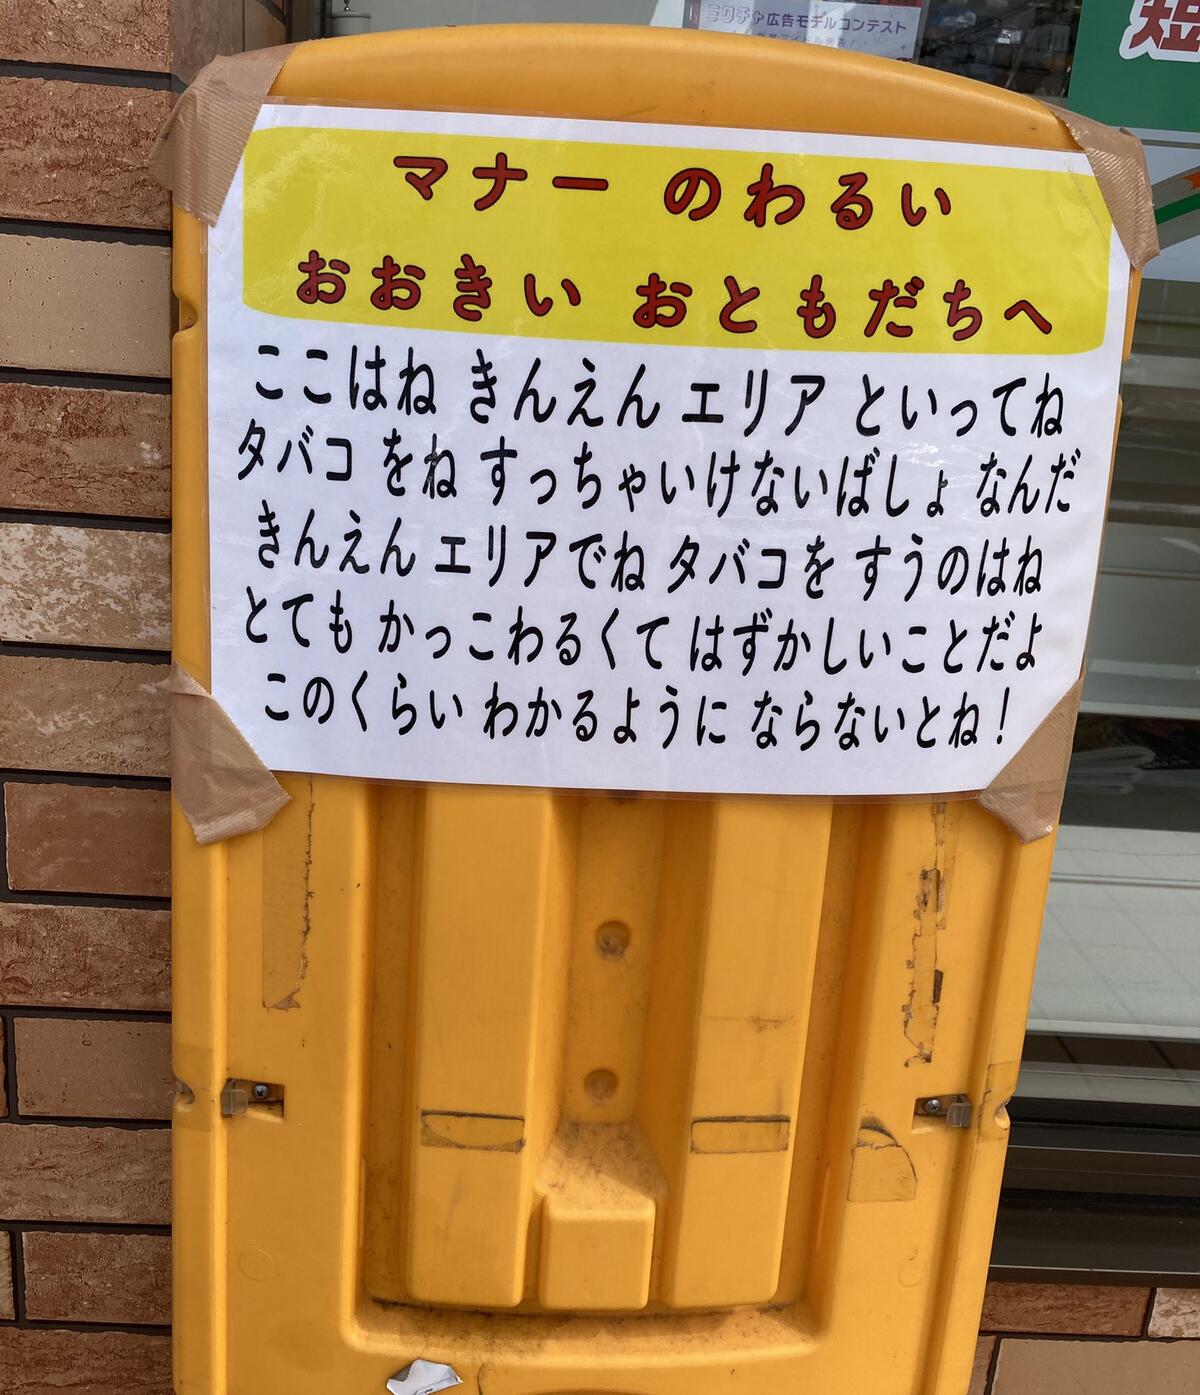 ミクチャ広告モデルコンテスト
短
マナー のわるい
おおきい おともだちへ
ここはね きんえん エリア といってね
タバコ をね すっちゃいけないばしょ なんだ
きんえん エリアでね タバコを すうのはね
とても かっこわるくて はずかしいことだよ
このくらい わかるように ならないとね!